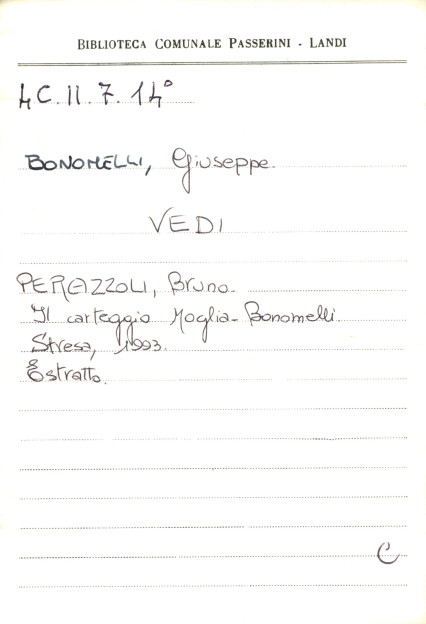 BIBLIOTECA COMUNALE PASSERINI - LANDI
4C. II. 7. 14°
BONOMELLI, Giuseppe.
VEDI
PERAZZOLI, Bruno.
Il carteggio Moglia-Bonomelli.
Stresa, 1993.
Estratto.
C